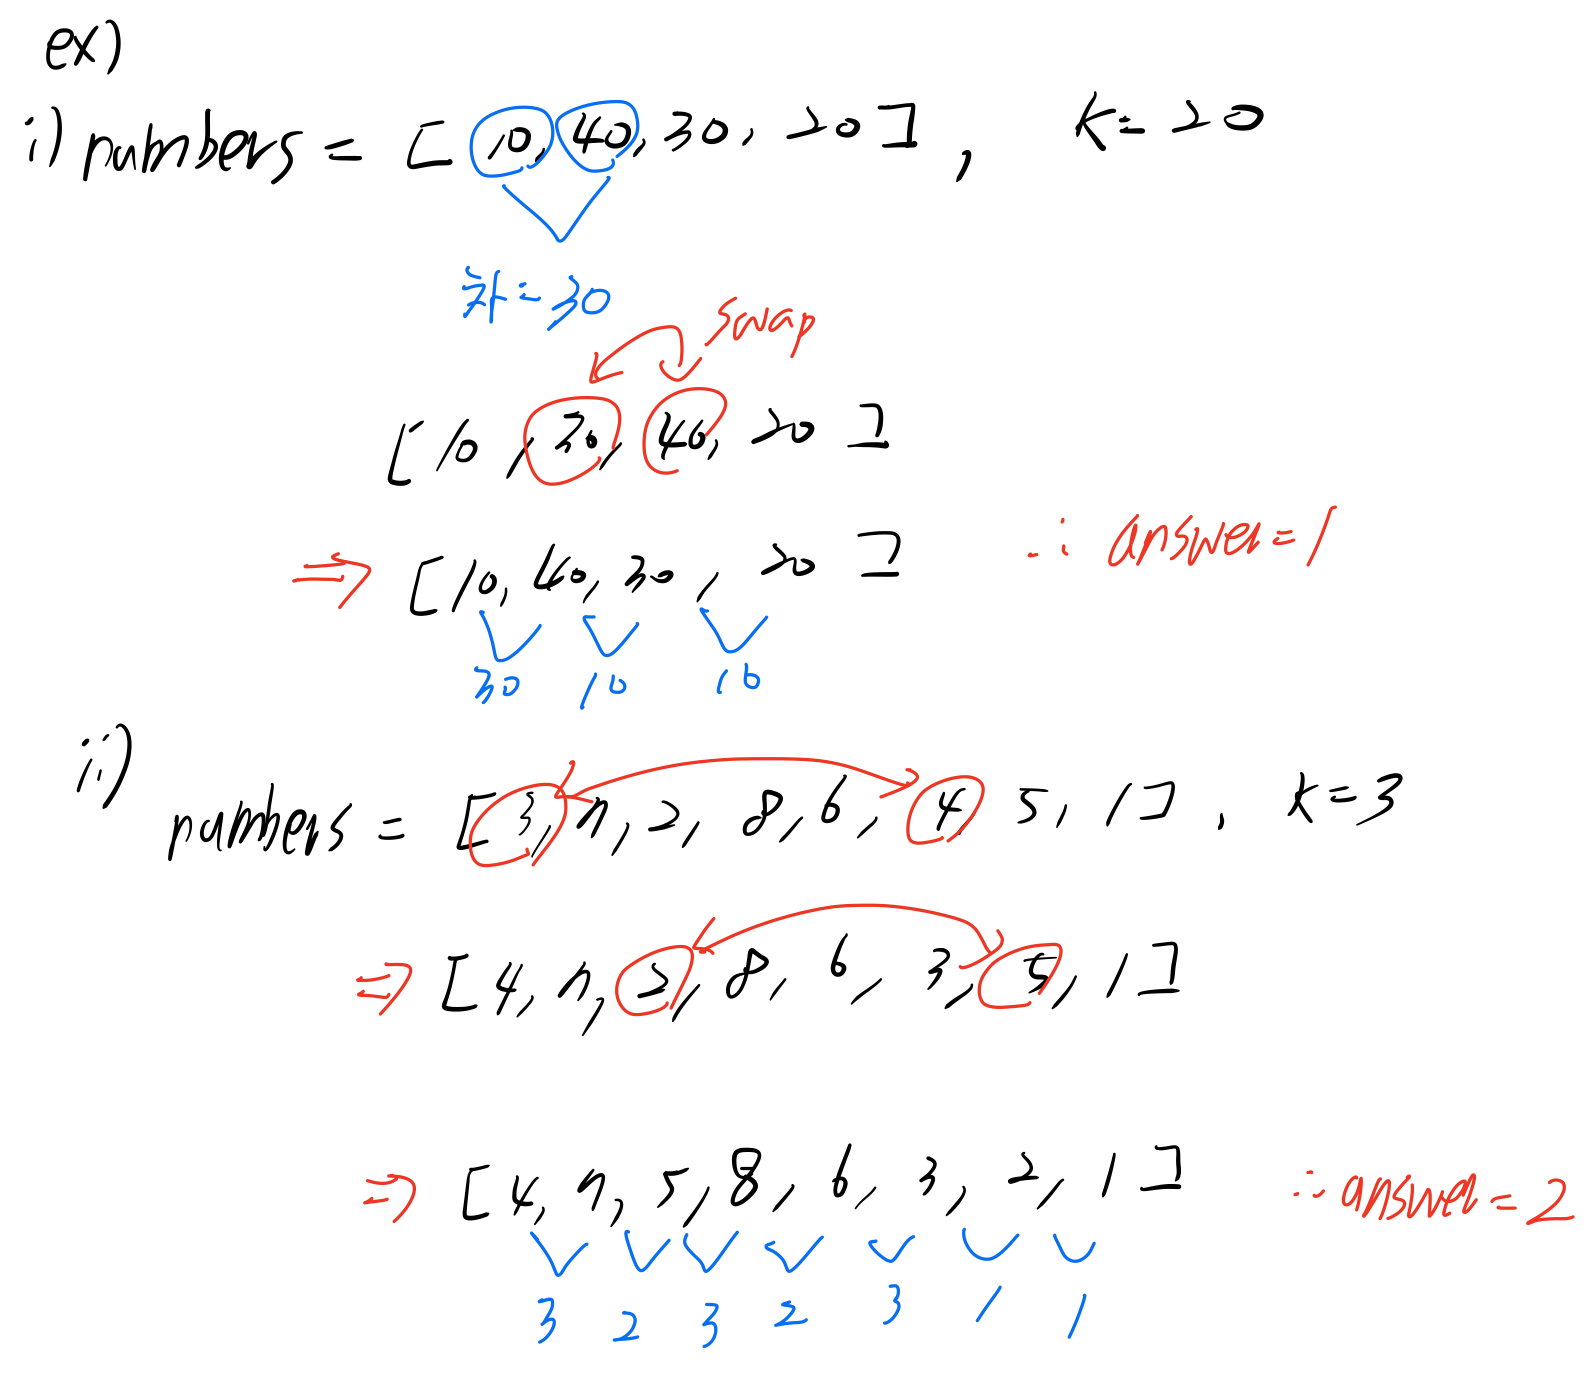 ex)
i) numbers = [10, 40, 30, 20], k = 20
차 = 30
swap
[10, 30, 40, 20]
⇒ [10, 40, 30, 20] ∴ answer = 1
30 10 10
ii)
numbers = [3, 7, 2, 8, 6, 4, 5, 1], k = 3
⇒ [4, 7, 2, 8, 6, 3, 5, 1]
⇒ [4, 7, 5, 8, 6, 3, 2, 1] ∴ answer = 2
3 2 3 2 3 1 1